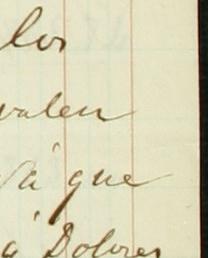 los
valen
a que
a Dolores